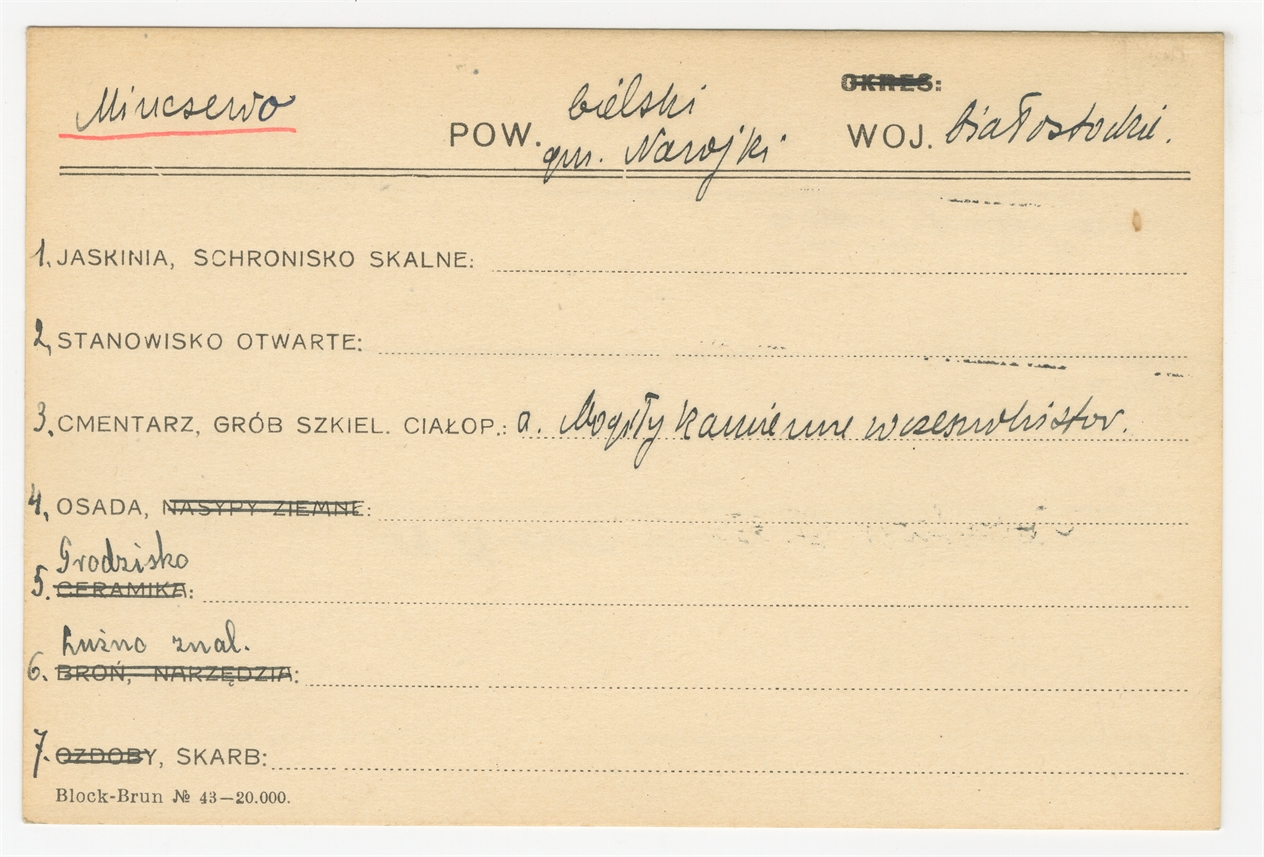 OKRES:
Minczewo POW. bielski WOJ. białostockie.
gm. Narojki
1. JASKINIA, SCHRONISKO SKALNE:
2. STANOWISKO OTWARTE:
3. CMENTARZ, GRÓB SZKIEL. CIAŁOP.: a. Mogiły kamienne wczesnohistor.
4. OSADA, NASYPY ZIEMNE:
Grodzisko
5. CERAMIKA:
Luźno znal.
6. BROŃ, NARZĘDZIA:
7. OZDOBY, SKARB:
Block-Brun № 43—20.000.